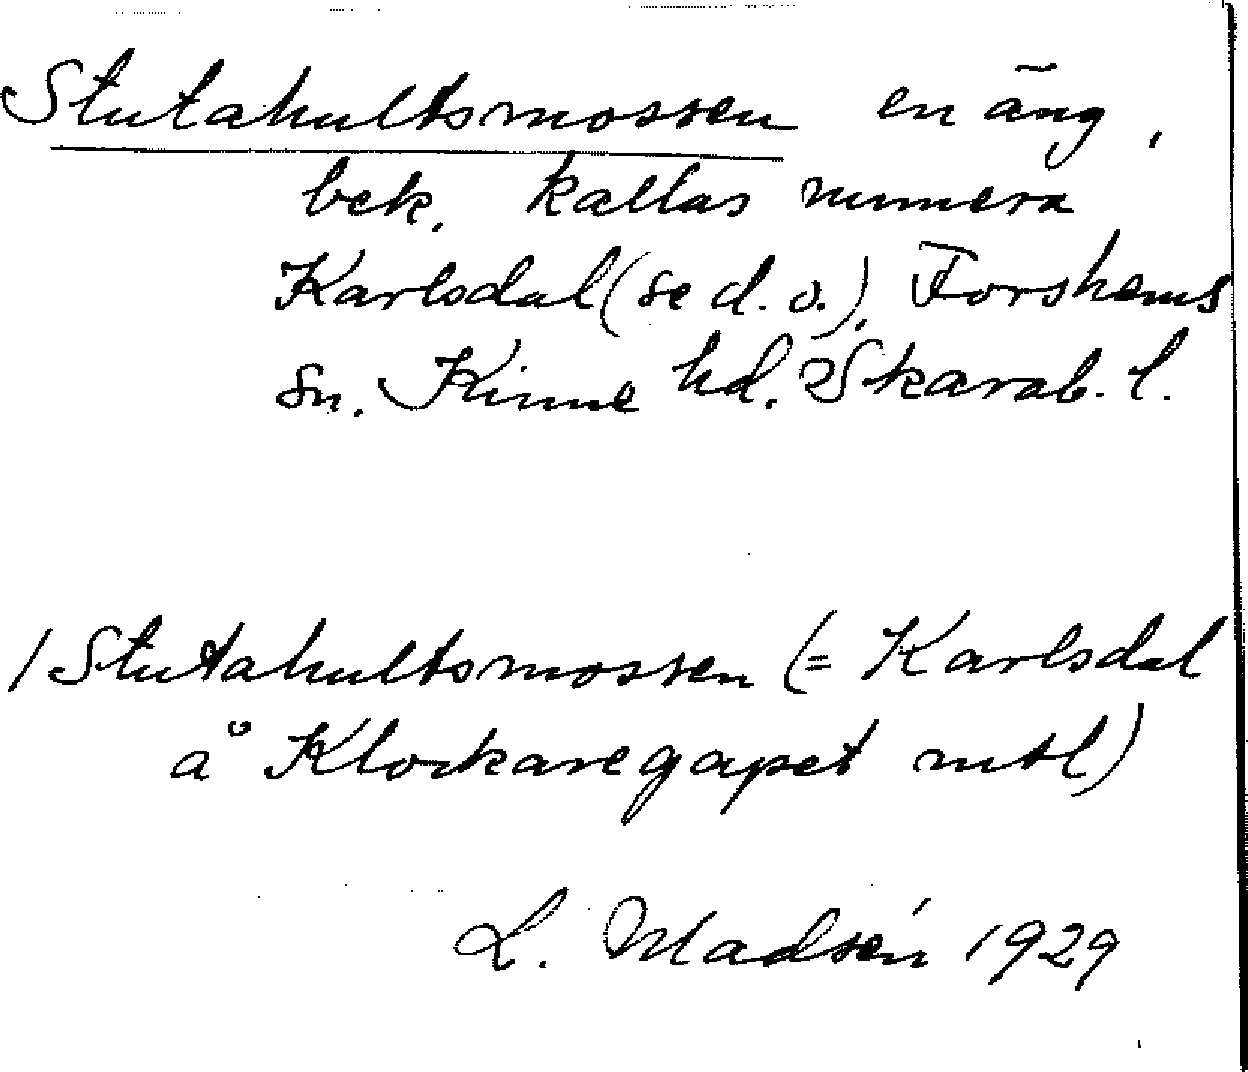 Stutahultsmossen en äng,
bek. kallas numera
Karlsdal (se d. o.), Forshems
sn. Kinne hd. Skarab. l.
/ Stutahultsmossen (= Karlsdal
å Klockaregapet mtl)
L. Madsén 1929